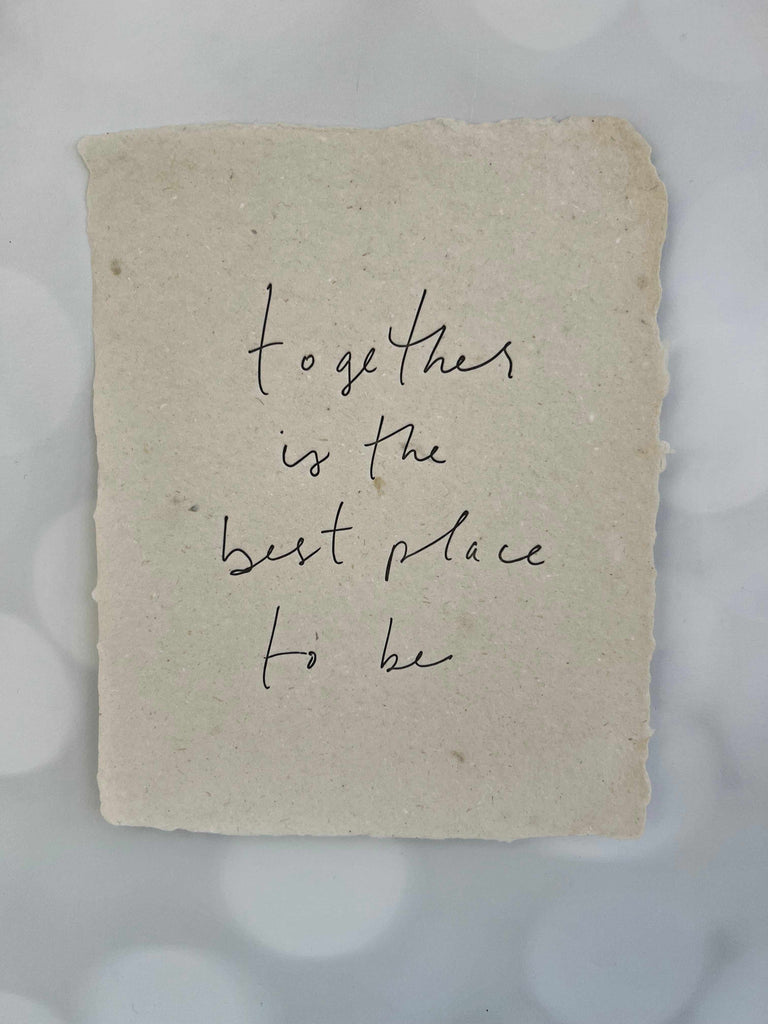 together
is the
best place
to be